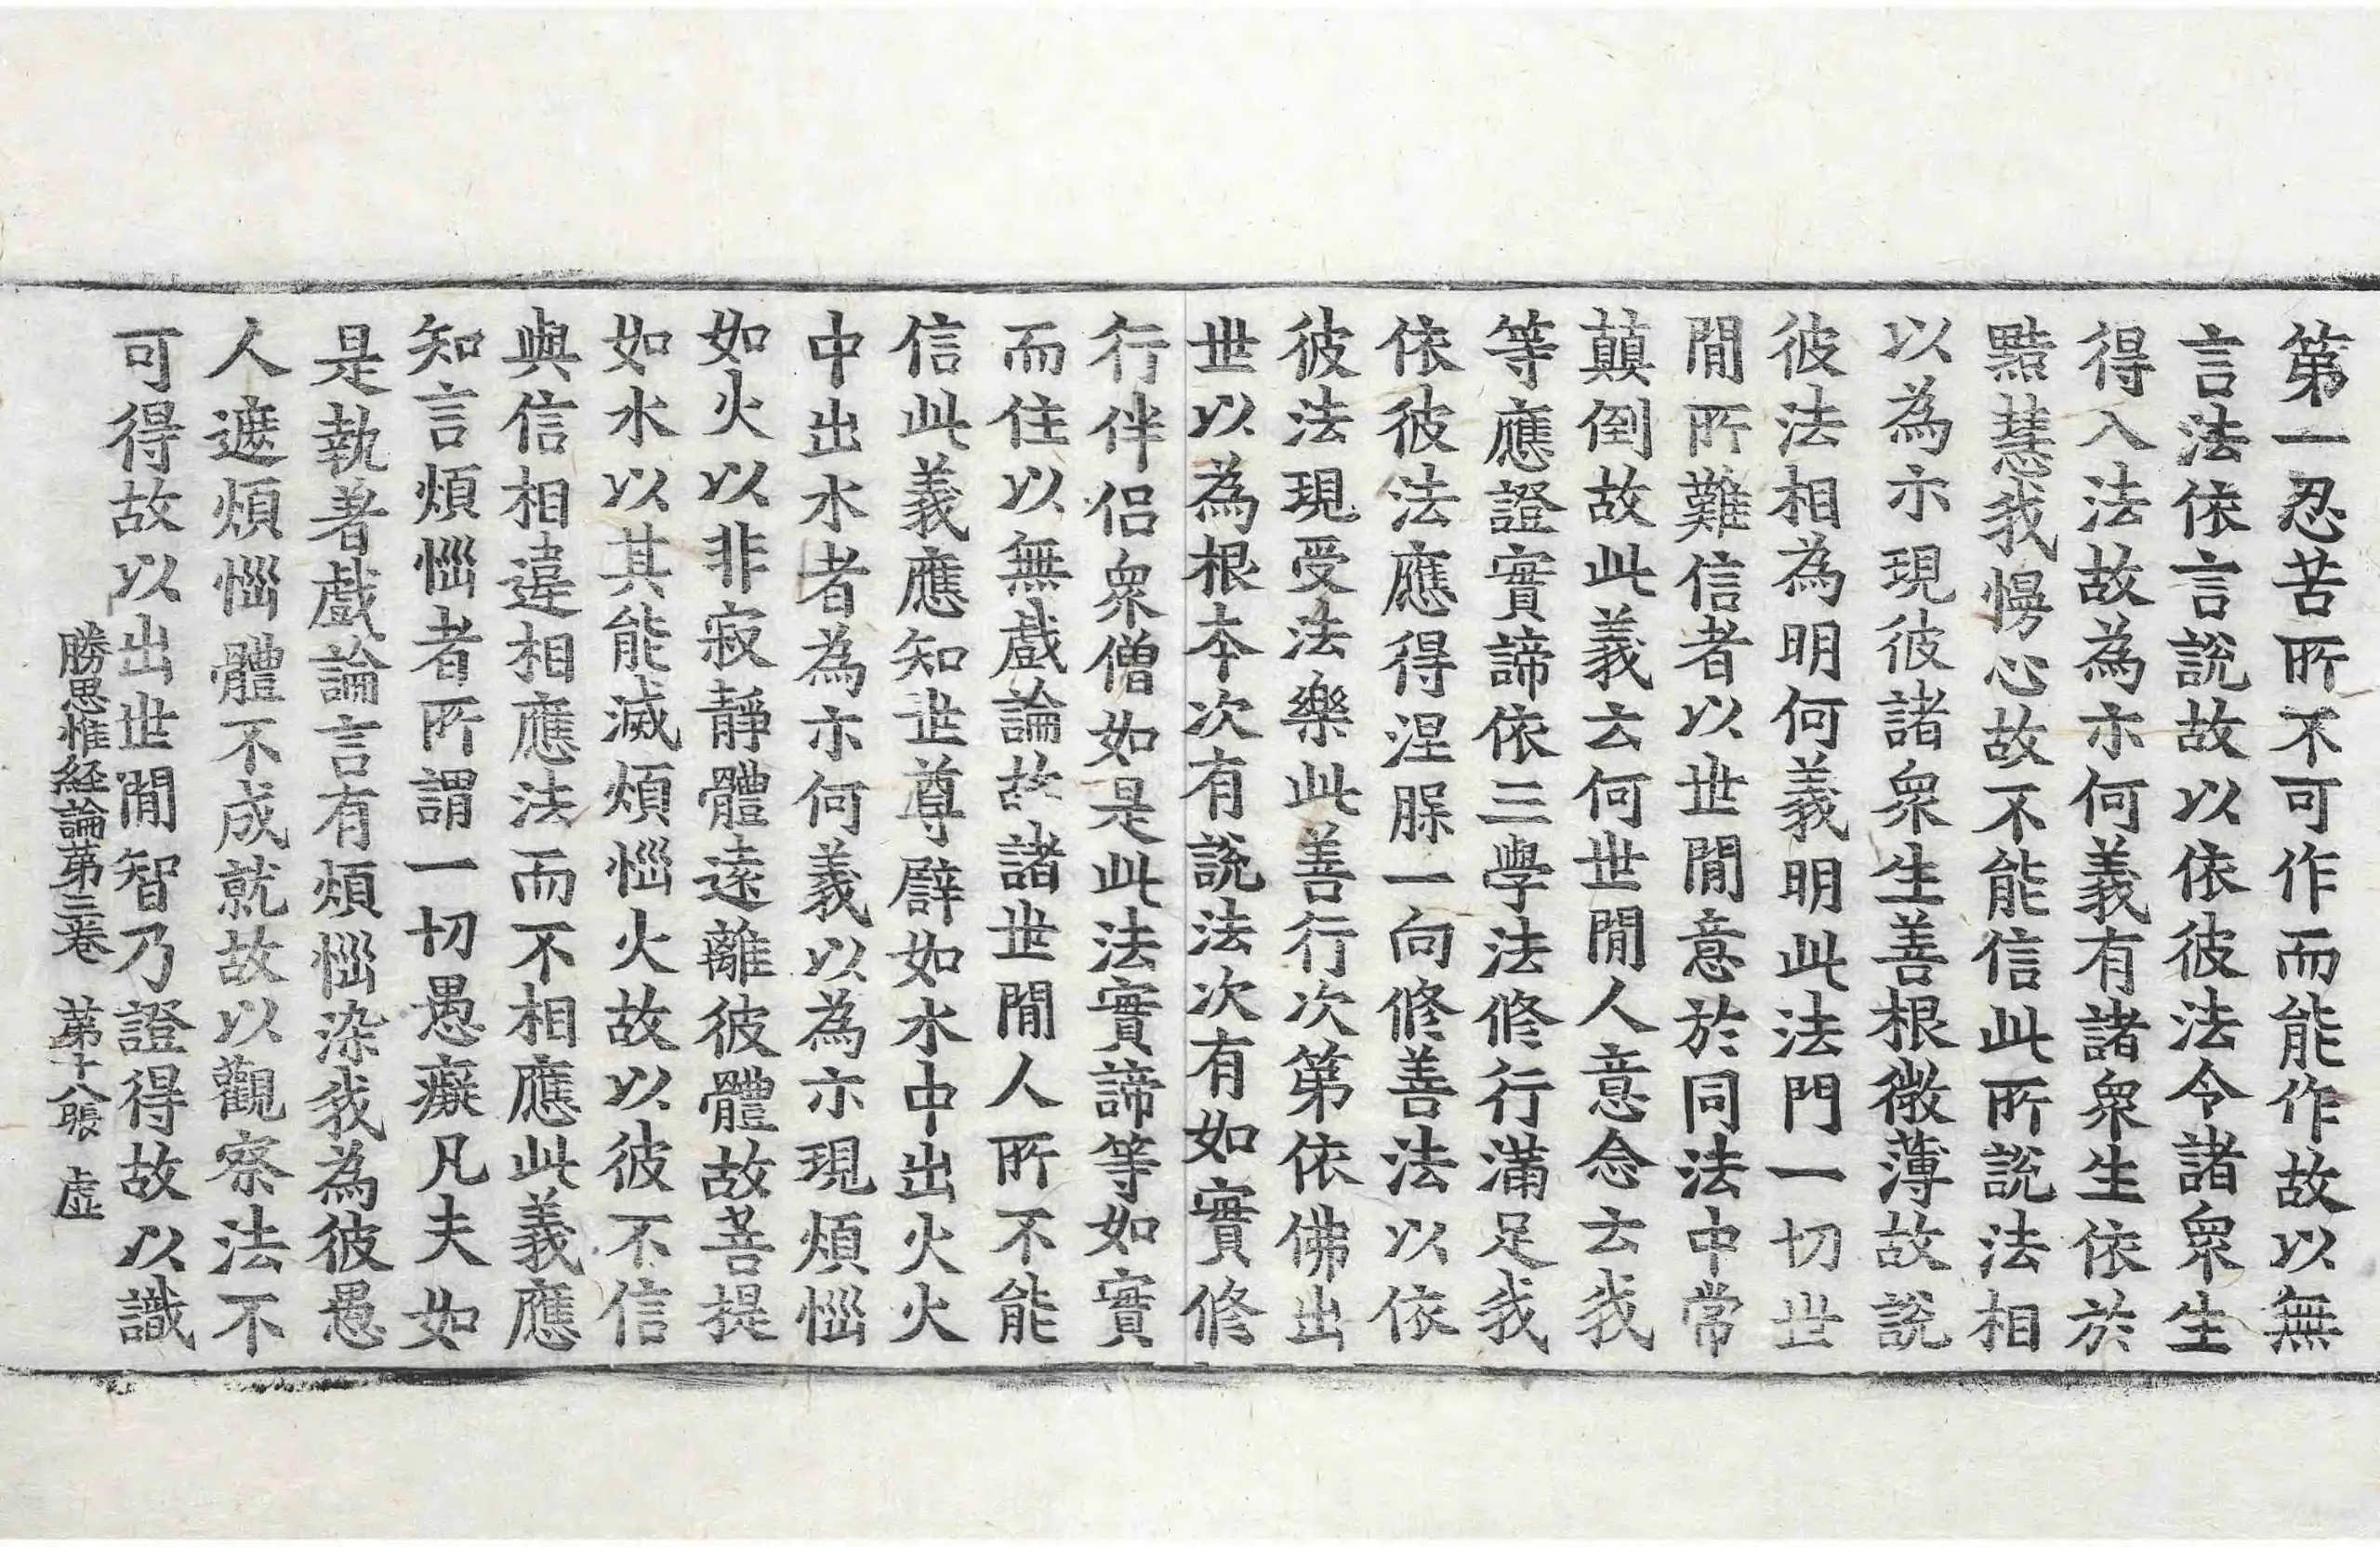 第一忍苦所不可作而能作故以無
言法依言說故以依彼法令諸衆生
得入法故為示何義有諸衆生依於
黠慧我慢心故不能信此所說法相
以為示現彼諸衆生善根微薄故說
彼法相為明何義明此法門一切世
閒所難信者以世閒意於同法中常
顛倒故此義云何世閒人意念去我
等應證實諦依三學法修行滿足我
依彼法應得涅槃一向修善法以依
彼法現受法樂此善行次第依佛出
世以為根本次有說法次有如實修
行伴侶衆僧如是此法實諦等如實
而住以無戲論故諸世閒人所不能
信此義應知世尊譬如水中出火火
中出水者為示何義以為示現煩惱
如火以非寂靜體遠離彼體故菩提
如水以其能滅煩惱火故以彼不信
與信相違相應法而不相應此義應
知言煩惱者所謂一切愚癡凡夫如
是執著戲論言有煩惱染我為彼愚
人遮煩惱體不成就故以觀察法不
可得故以出世閒智乃證得故以識
勝思惟経論第三卷　第十八張　虛